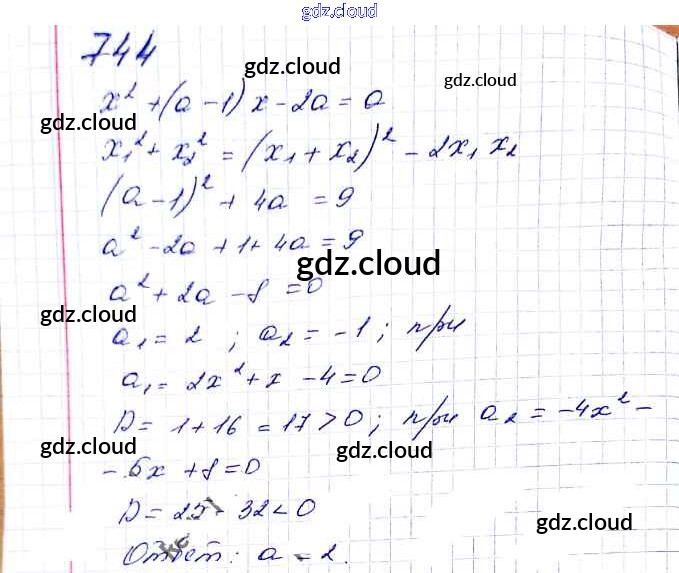 gdz.cloud
gdz.cloud
744
gdz.cloud
gdz.cloud
x² + (a - 1)x - 2a = a
gdz.cloud
x₁² + x₂² = (x₁ + x₂)² - 2x₁ x₂
(a - 1)² + 4a = 9
gdz.cloud
gdz.cloud
a² - 2a + 1 + 4a = 9
gdz.cloud
a² + 2a - 8 = 0
gdz.cloud
gdz.cloud
a₁ = 2 ; a₂ = -1 ; при
a₁ = 2x² + x - 4 = 0
D = 1 + 16 = 17 > 0 ; при a₂ = -4x² -
gdz.cloud
gdz.cloud
- 5x + 8 = 0
D = 25 - 32 < 0
gdz.cloud
Ответ: a = 2.